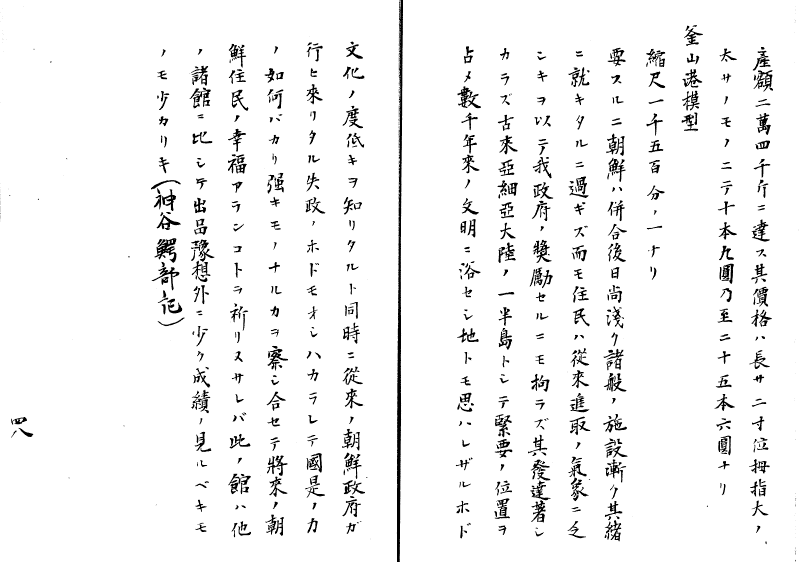 産額二萬四千斤ニ達ス其價格ハ長サ二寸位拇指大ノ
太サノモノニテ十本九圓乃至二十五本六圓ナリ
釜山港模型
縮尺一千五百分ノ一ナリ
要スルニ朝鮮ハ併合後日尚淺ク諸般ノ施設漸ク其緒
ニ就キタルニ過ギズ而モ住民ハ從來進取ノ氣象ニ乏
シキヲ以テ我政府ノ奬勵セルニモ拘ラズ其發達著シ
カラズ古來亞細亞大陸ノ一半島トシテ緊要ノ位置ヲ
占メ數千年來ノ文明ニ浴セシ地トモ思ハレザルホド
文化ノ度低キヲ知リタルト同時ニ從來ノ朝鮮政府ガ
行ヒ來リタル失政ノホドモオシハカラレテ國是ノカ
ノ如何バカリ强キモノナルカヲ察シ合セテ將來ノ朝
鮮住民ノ幸福アランコトヲ祈リヌサレバ此ノ館ハ他
ノ諸館ニ比シテ出品豫想外ニ少ク成績ノ見ルベキモ
ノモ少カリキ(神谷鰐部記)
四八